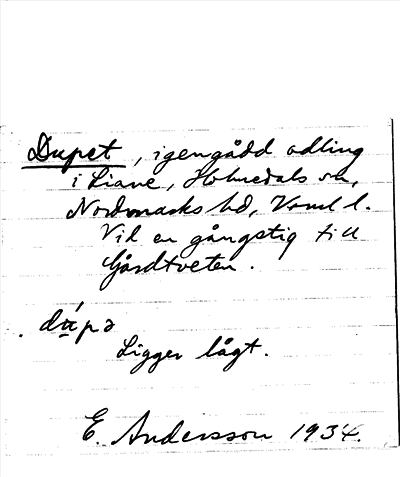 Dupet, igengådd odling
i Liane, Holmedals sn,
Nordmarks hd, Värml l.
Vid en gångstig till
Gårdtveten.
dúpə
Ligger lågt.
E. Andersson 1934.